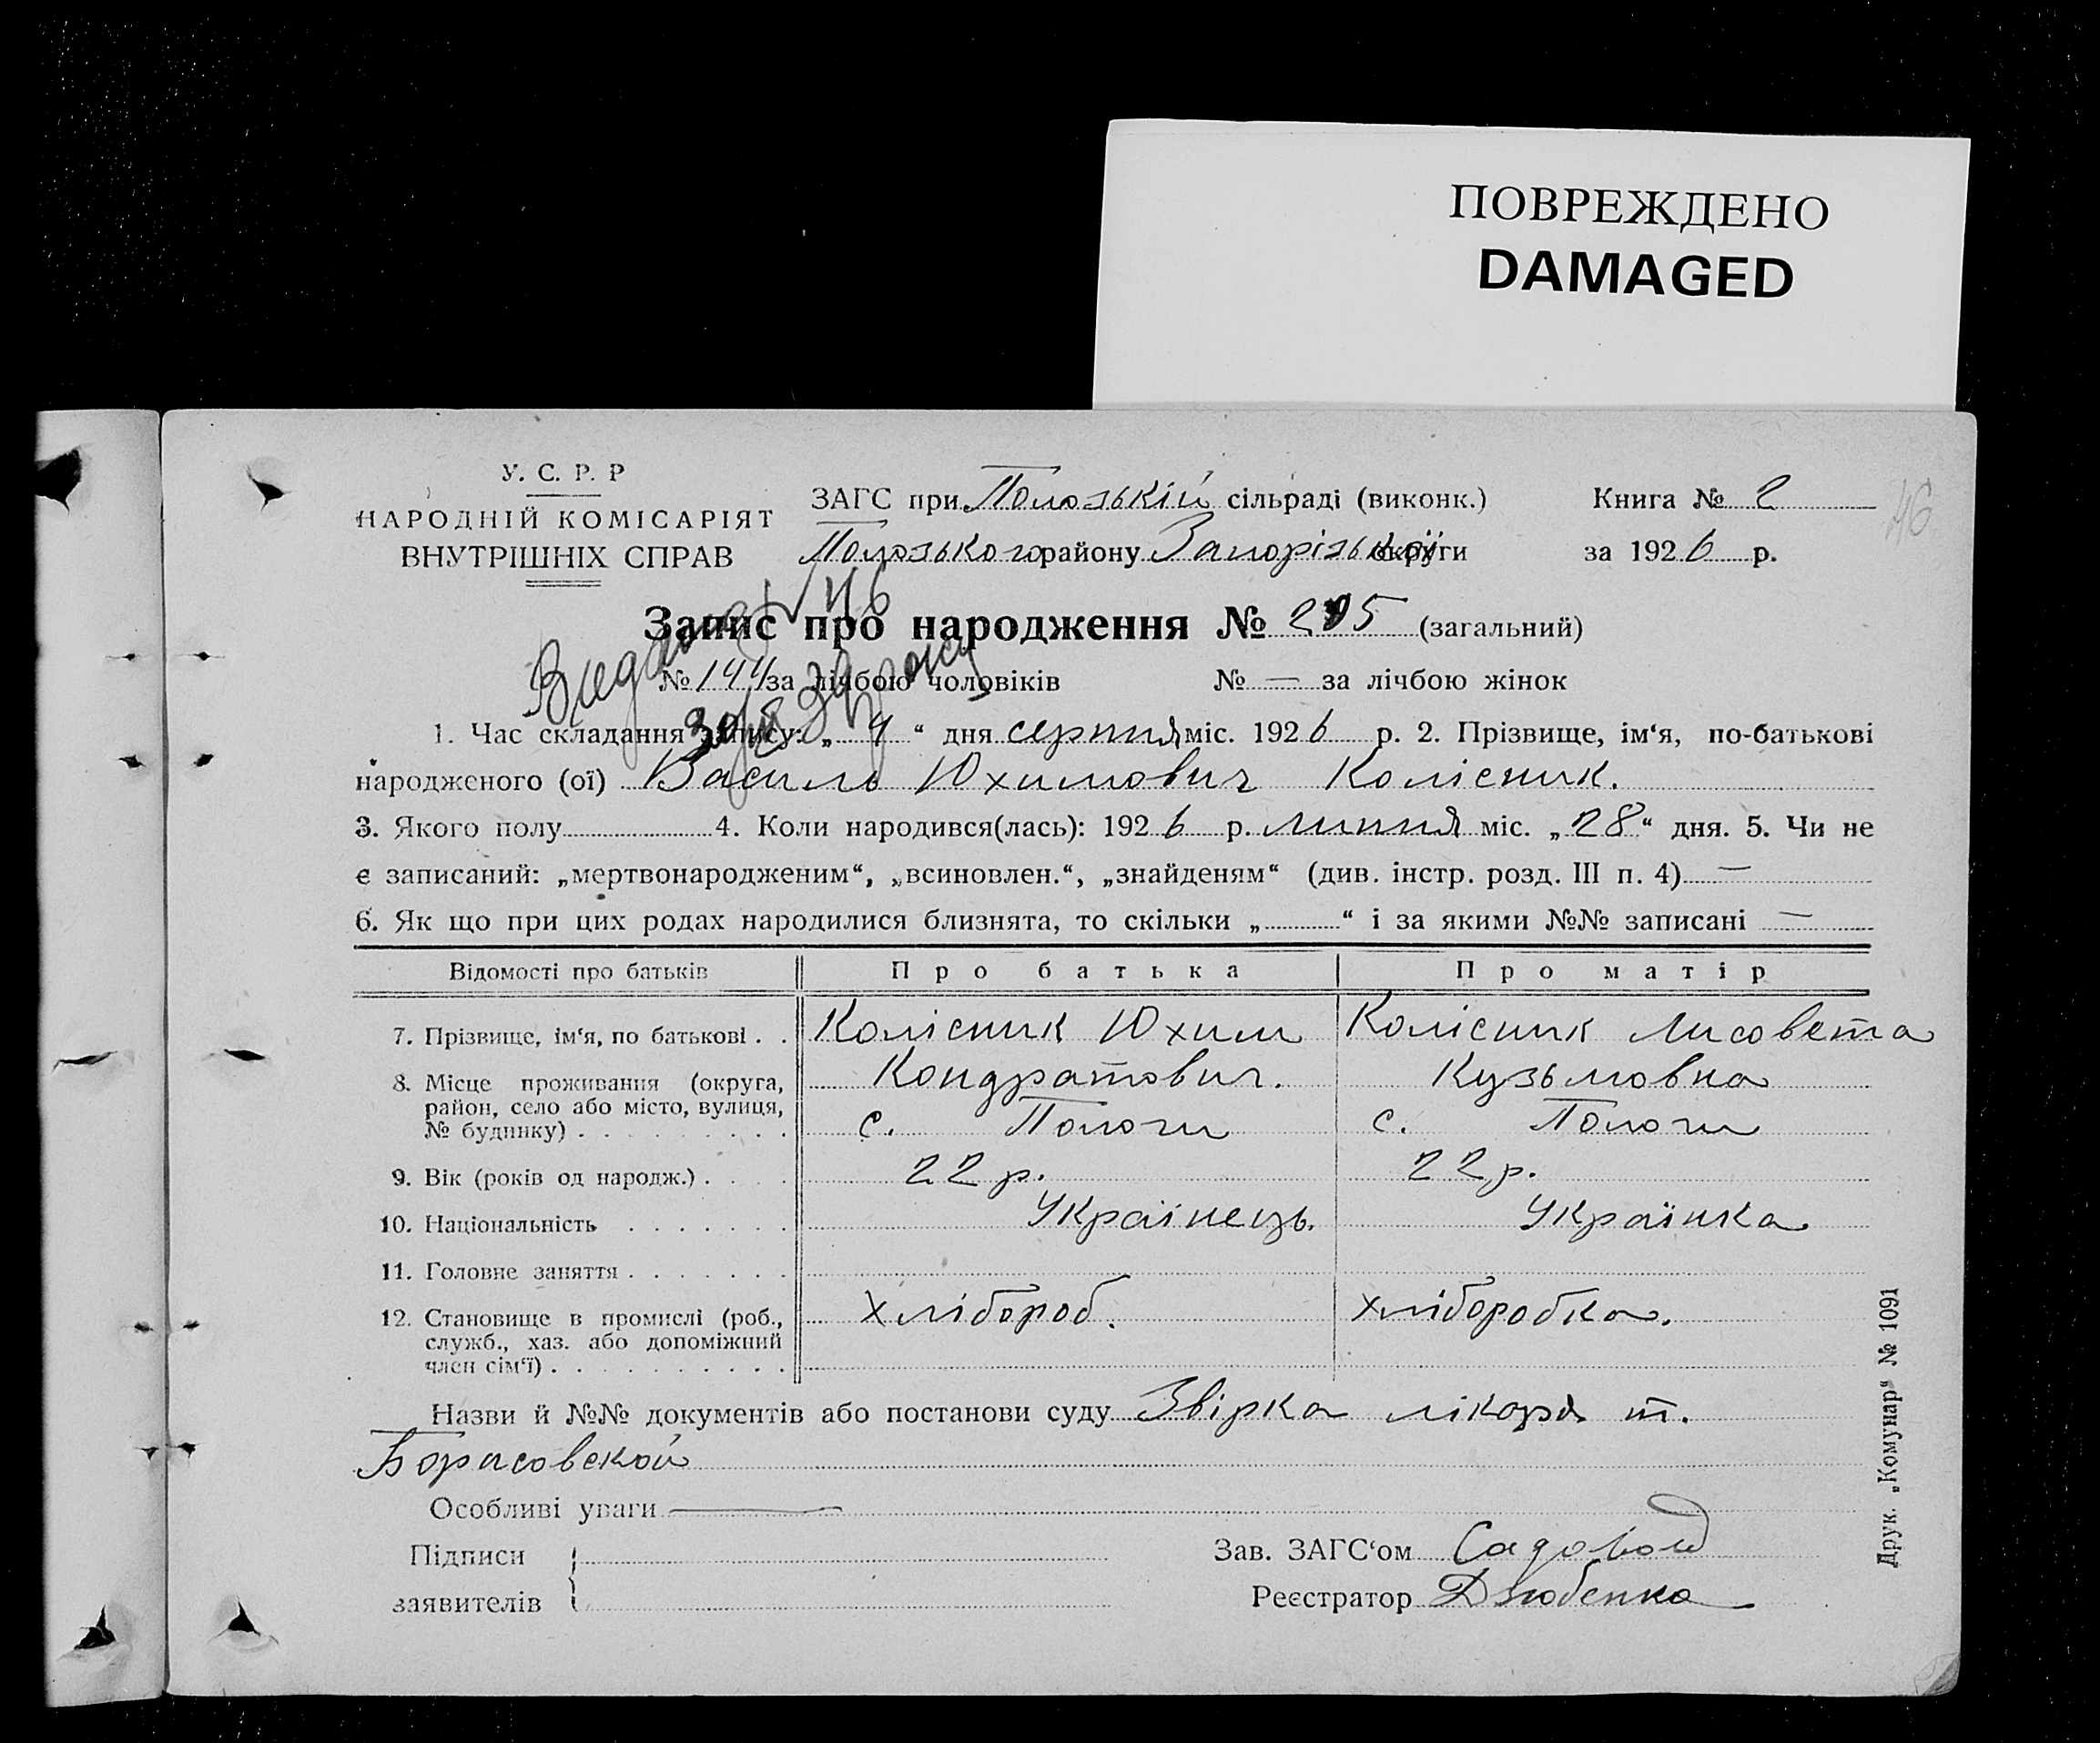 ПОВРЕЖДЕНО
DAMAGED
У. С. Р. Р
НАРОДНІЙ КОМІСАРІЯТ
ВНУТРІШНІХ СПРАВ
ЗАГС при Полозькій сільраді (виконк.)
Полозького району Запорізької округи
Книга № 2
за 1926 р.
46
Запис про народження № 2 5 (загальний)
№ 144 за лічбою чоловіків № — за лічбою жінок
1. Час складання запису: „ 4 “ дня серпня міс. 1926 р. 2. Прізвище, ім‘я, по-батькові
народженого (ої) Василь Юхимович Колісник.
3. Якого полу 4. Коли народився(лась): 1926 р. липня міс. „28“ дня. 5. Чи не
є записаний: „мертвонародженим“, „всиновлен.“, „знайденям“ (див. інстр. розд. III п. 4) —
6. Як що при цих родах народилися близнята, то скільки „ “ і за якими №№ записані —
Відомості про батьків Про батька Про матір
7. Прізвище, ім‘я, по батькові . . Колісник Юхим Колісник Лисовета
Кондратович. Кузьмовна
8. Місце проживання (округа,
район, село або місто, вулиця,
№ будинку) . . . . . . . . . с. Пологи с. Пологи
9. Вік (років од народж.) . . . . 22 р. 22 р.
10. Національність . . . . . . . Українець. Українка
11. Головне заняття . . . . . . .
12. Становище в промислі (роб., хлібороб. хліборобка.
служб., хаз. або допоміжний
член сім‘ї) . . . . . . . . . .
Назви й №№ документів або постанови суду Звірка лікаря т.
Борисовской
Особливі уваги —
Підписи
заявителів
Зав. ЗАГС‘ом
Реєстратор Дзюбенко
Друк. „Комунар“ № 1091